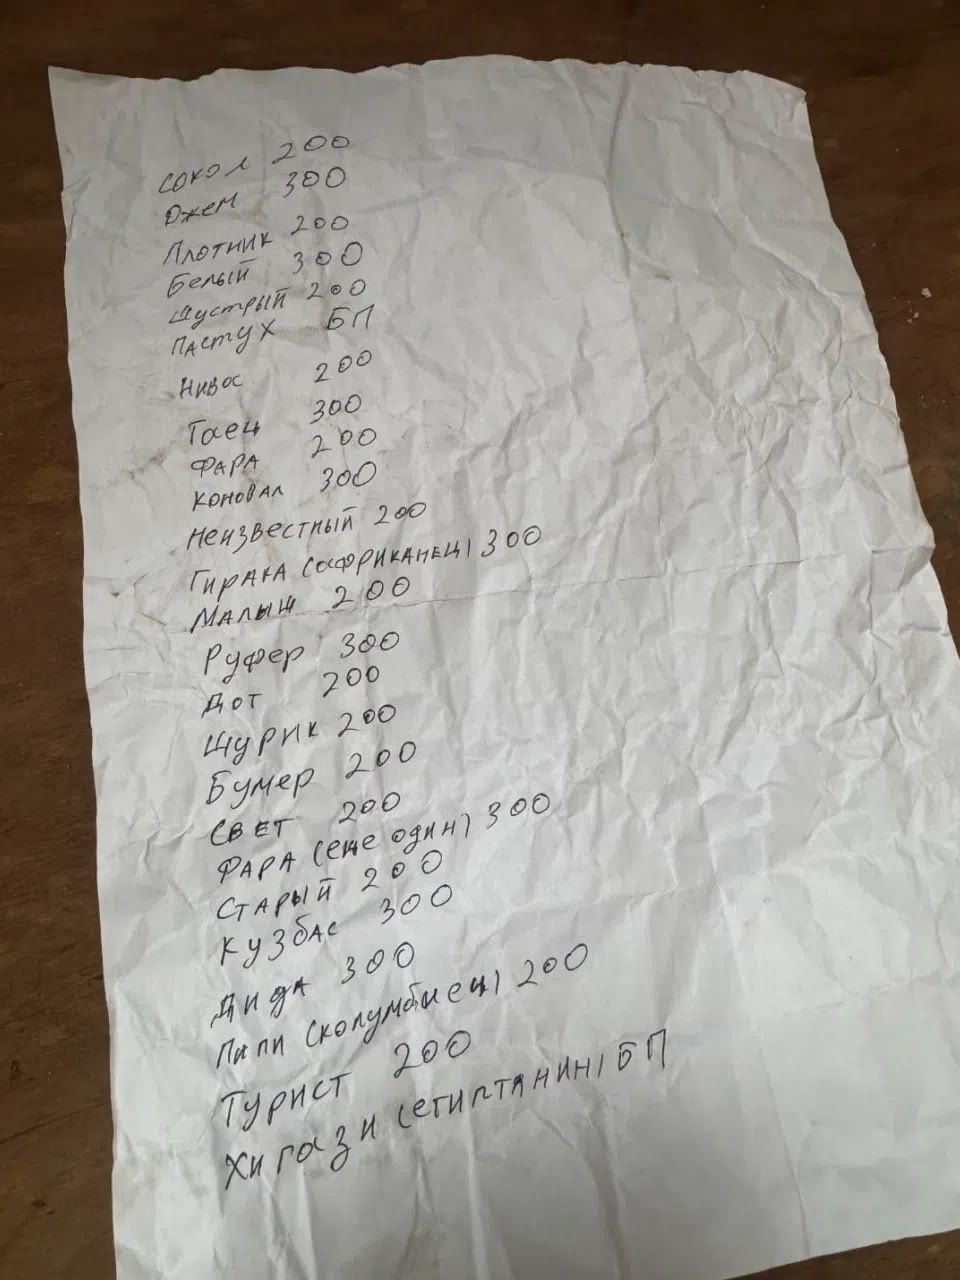 сокол 200
Джем 300
Плотник 200
Белый 300
Шустрый 200
Пастух БП
Нивос 200
Гаец 300
ФАРА 200
коновал 300
Неизвестный 200
Гирака (африканец) 300
Малыш 200
Руфер 300
Дот 200
Шурик 200
Бумер 200
СВЕТ 200
ФАРА (еще один) 300
Старый 200
Кузбас 300
Дида 300
Пипи (колумбиец) 200
Турист 200
Хигази (египтянин) БП